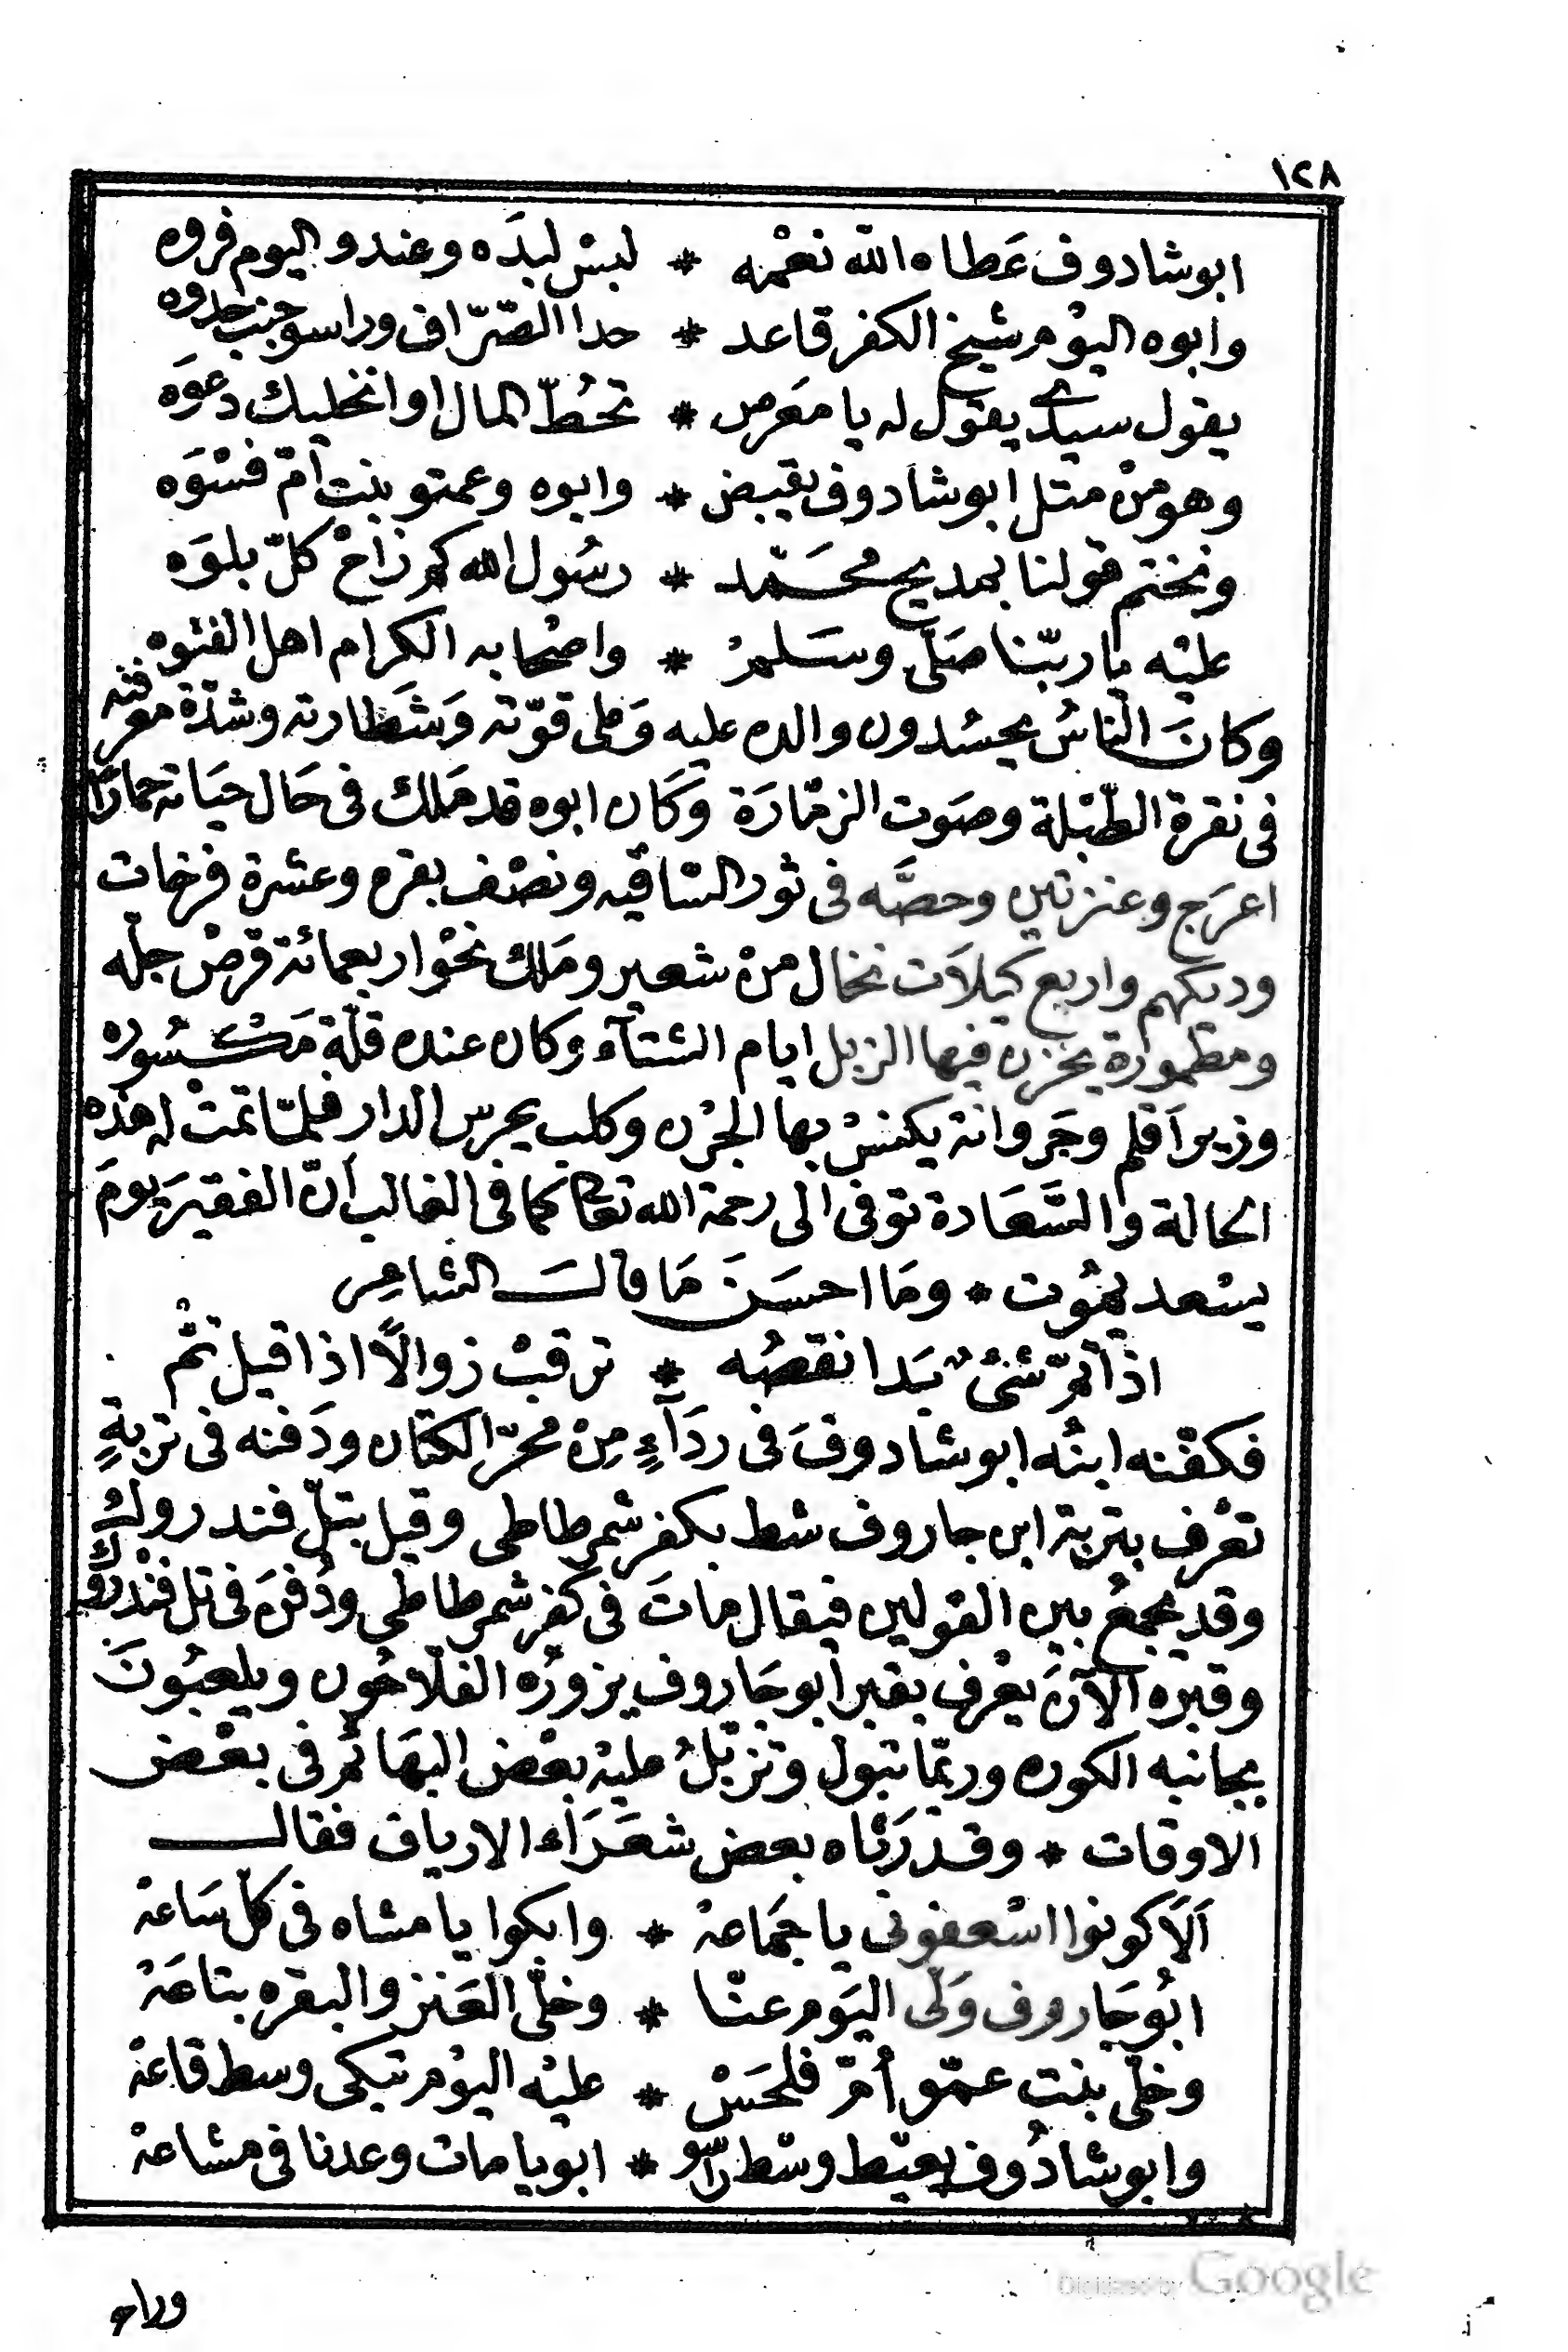 ١٢٨
ابوشادوف عَطاه الله نعْمه * لبسْ لبدَه وعندو اليوم فروه
وابوه اليوْم شيخ الكفر قاعد * حدا الصّرّاف وراسو جنب جدوه
يقول سيدى يقول له يا مَعرص * تحُطّ المال اوانخليك دعوَه
وهو منْ متل ابوشادوف يقيبض * وابوه وعمتو بنت أمّ فسْوَه
ونختم قولنا بمديح محَسَّمد * رسُول الله كم زاحْ كلّ بلوَه
عليْه يا ربّنا صَلّى وسَلمْ * واصْحابه الكرام اهل الفتوه
وكانَ النّاسُ يحسُدون والده عليه وَعلى قوّته وَشَطارته وشدّة معرفته
فى نقرة الطّبْلة وصَوت الزمّارَة وَكَان ابوه قد مَلك فى حَال حيَاته حمارًا
اعرَج وعنزتين وحصَّه فى ثور السّاقيه ونصْف بقره وعشرة فرخات
وديكهم واربع كيلاَت نخال منْ شعير ومَلك نحْو اربعمائة قرصْ جلّه
ومطمورة يخزن فيها الزبل ايام الشتآء وكان عنده قلّة مَكسُوره
وزير اَقلم وجَروانة يكنسْ بها الجرْن وكلب يحرس الدار فلمّا تمتْ له هَذه
الحالة والسَّعَادة توفى الى رحمة الله تعَالى كما فى الغالب اَنّ الفقيرَ يومَ
يسْعد يموُت * ومَا احسَنَ مَا قالَ الشاعِر
اذا تمّ شئٌ بَدا نقصُه * ترقبْ زوالًا اذا قيل تمْ
فكفّنه ابنُه ابوشادوفَ فى ردَآءٍ مِنْ محرّ الكتان ودَفنه فى تربةٍ
تعْرف بتربة ابن جاروف شط بكفر شمرطاطى وقيل بتلّ فندروك
وقد يجمعُ بين القولين فيقال ماتَ فى كفر شمرطاطى ودُفنَ فى تل فندْروك
وقبره الآنَ يعْرف بقبر أبوجَاروف يزورُه الفلّاحُون ويلعبُونَ
بجانبه الكوره وربمّا تبول وتزبّلُ عليهْ بعْض البهَائم فى بعْض
الاوقات * وقد رَثاه بعض شعَرَاء الارياف فقال
اَلَا كونوا اسْعفونى يا جمَاعهْ * وابكوا يا مشاه فى كلّ سَاعهْ
ابُوجَاروف وَلّى اليَوم عنّا * وخلّى العَنز والبقره بتاعَهْ
وخلّى بنتِ عمّو أمّ فلحَسْ * عليْه اليوْم تبكى وسط قاعهْ
وابوشادُوف يعيّط وسْط راسو * ابويا مات وعدنا فى مشاعهْ
وراح
Digitized by Google